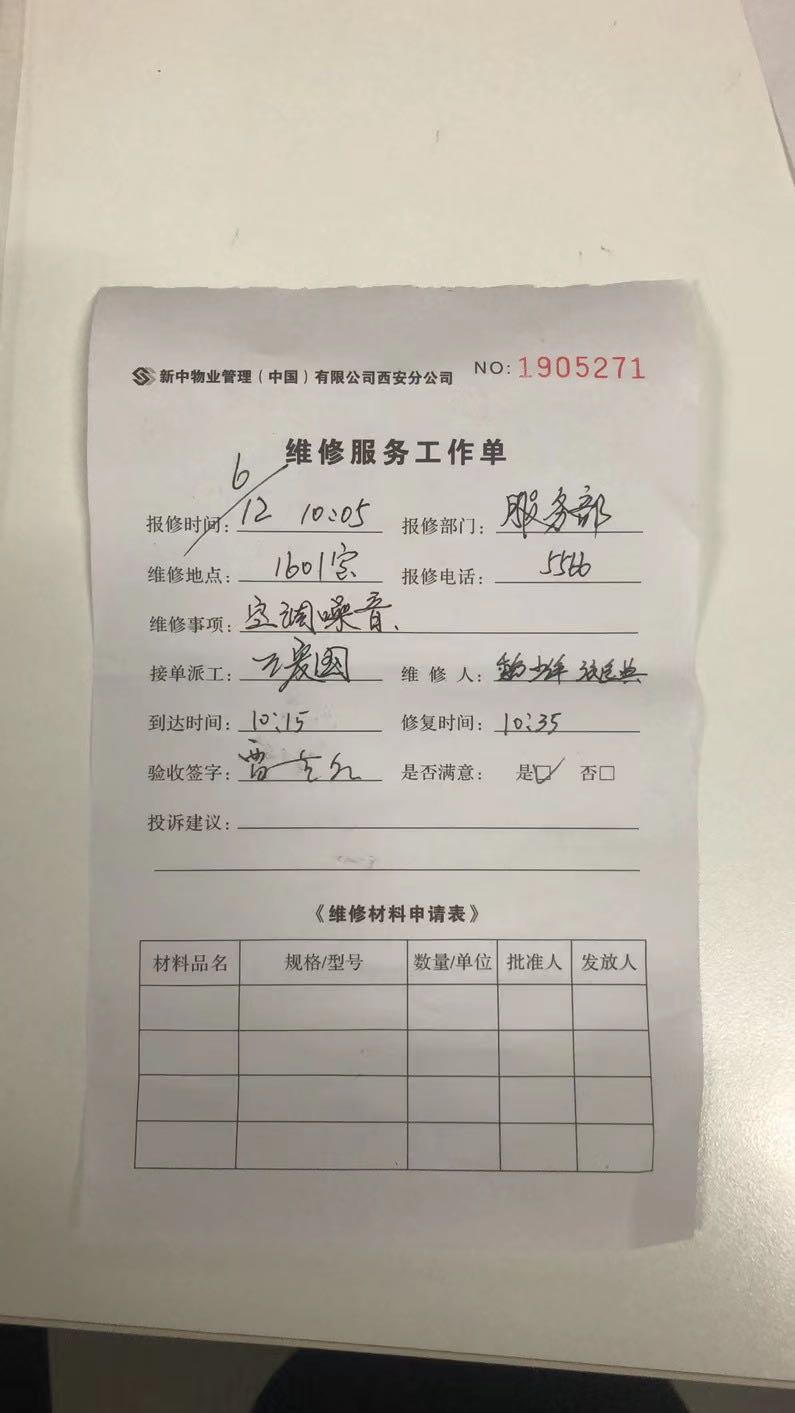 新中物业管理（中国）有限公司西安分公司 NO: 1905271
维修服务工作单
报修时间: 6/12 10:05 报修部门: 服务部
维修地点: 1601室 报修电话: 5566
维修事项: 空调噪音、
接单派工: 王爱国 维修人:
到达时间: 10:15 修复时间: 10:35
验收签字: 是否满意: 是☑ 否□
投诉建议:
《维修材料申请表》
材料品名 规格/型号 数量/单位 批准人 发放人